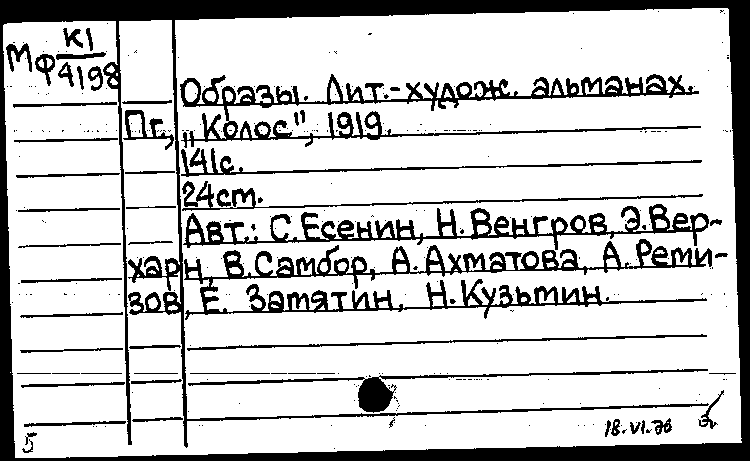 К1
Мф 4198
Образы. Лит.-худож. альманах.
Пг., „Колос", 1919.
141с.
24cm.
Авт.: С.Есенин, Н.Венгров, Э.Вер-
харн, В.Самбор, А.Ахматова, А.Реми-
зов, Е. Замятин, Н.Кузьмин.
5
18.VI.76